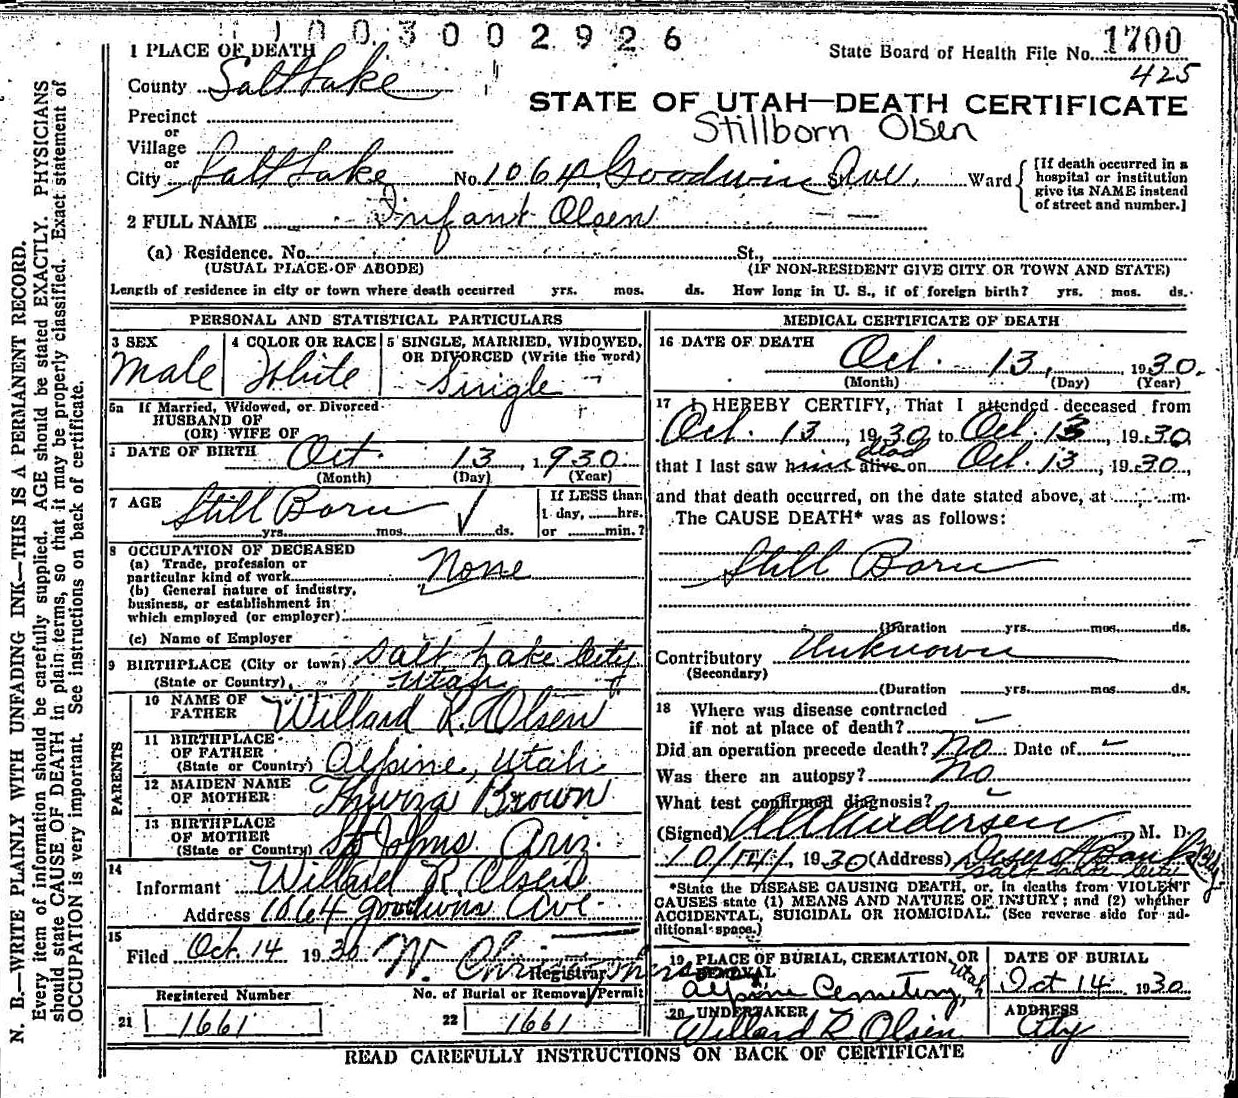 1003002926
1 PLACE OF DEATH
State Board of Health File No. 1700
425
County Salt Lake
STATE OF UTAH—DEATH CERTIFICATE
Stillborn Olsen
Precinct
or
Village
or
City Salt Lake No. 1064 Goodwin St. Ave. Ward
[If death occurred in a
hospital or institution
give its NAME instead
of street and number.]
2 FULL NAME Infant Olsen
(a) Residence. No. St.,
(USUAL PLACE OF ABODE) (IF NON-RESIDENT GIVE CITY OR TOWN AND STATE)
Length of residence in city or town where death occurred yrs. mos. ds. How long in U. S., if of foreign birth? yrs. mos. ds.
PERSONAL AND STATISTICAL PARTICULARS
3 SEX 4 COLOR OR RACE 5 SINGLE, MARRIED, WIDOWED,
OR DIVORCED (Write the word)
Male White Single
5a If Married, Widowed, or Divorced
HUSBAND OF
(OR) WIFE OF
DATE OF BIRTH Oct. 13, 1930
(Month) (Day) (Year)
7 AGE Still Born
yrs. mos. ds.
If LESS than
1 day, hrs.
or min.?
8 OCCUPATION OF DECEASED
(a) Trade, profession or
particular kind of work None
(b) General nature of industry,
business, or establishment in
which employed (or employer)
(c) Name of Employer
9 BIRTHPLACE (City or town) Salt Lake City
(State or Country) Utah
PARENTS
10 NAME OF
FATHER Willard R. Olsen
11 BIRTHPLACE
OF FATHER
(State or Country) Alpine, Utah
12 MAIDEN NAME
OF MOTHER Thurza Brown
13 BIRTHPLACE
OF MOTHER
(State or Country) St Johns Ariz.
14
Informant Willard R. Olsen
Address 1064 Goodwin Ave.
15
Filed Oct. 14 1930 W. Christophers
Registrar
Registered Number No. of Burial or Removal Permit
21 1661 22 1661
MEDICAL CERTIFICATE OF DEATH
16 DATE OF DEATH
Oct. 13, 1930.
(Month) (Day) (Year)
17 I HEREBY CERTIFY, That I attended deceased from
Oct. 13, 1930 to Oct. 13, 1930,
dead
that I last saw him alive on Oct. 13, 1930,
and that death occurred, on the date stated above, at m.
The CAUSE DEATH* was as follows:
Still Born
(Duration yrs. mos. ds.
Contributory Unknown
(Secondary)
(Duration yrs. mos. ds.
18 Where was disease contracted
if not at place of death?
Did an operation precede death? No Date of
Was there an autopsy? No
What test confirmed diagnosis?
(Signed) Andersen M. D.
10/14/, 1930 (Address) Deseret Bank Bldg
Salt Lake City
*State the DISEASE CAUSING DEATH, or, in deaths from VIOLENT
CAUSES state (1) MEANS AND NATURE OF INJURY; and (2) whether
ACCIDENTAL, SUICIDAL OR HOMICIDAL. (See reverse side for ad-
ditional space.)
19 PLACE OF BURIAL, CREMATION, OR
REMOVAL
Alpine Cemetery, Utah
DATE OF BURIAL
Oct 14 1930
20 UNDERTAKER
Willard R Olsen
ADDRESS
City
READ CAREFULLY INSTRUCTIONS ON BACK OF CERTIFICATE
N. B.—WRITE PLAINLY WITH UNFADING INK—THIS IS A PERMANENT RECORD.
Every item of information should be carefully supplied. AGE should be stated EXACTLY. PHYSICIANS
should state CAUSE OF DEATH in plain terms, so that it may be properly classified. Exact statement of
OCCUPATION is very important. See instructions on back of certificate.